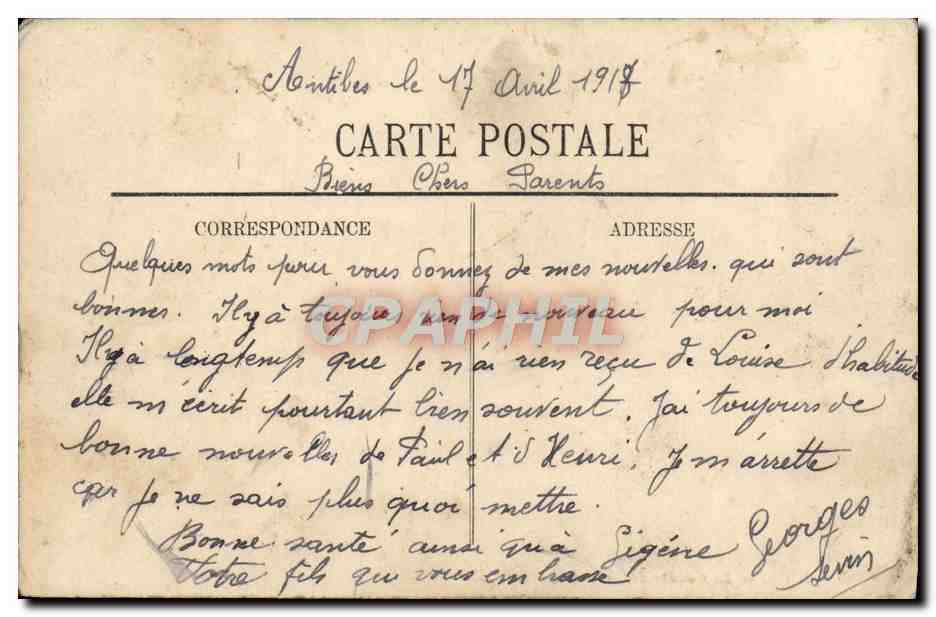 Antibes le 17 Avril 1917
CARTE POSTALE
Biens Chers Parents
CORRESPONDANCE
ADRESSE
Quelques mots pour vous donnez de mes nouvelles. qui sont
bonnes. Il y à toujours rien de nouveau pour moi
CPAPHIL
Il y à longtemp que je n'ai rien reçu de Louise d'habitude
elle m'écrit pourtant bien souvent. J'ai toujours de
bonne nouvelles de Paul et d Henri. Je m'arrette
car je ne sais plus quoi mettre.
Bonne santé ainsi qu'à Gigéne
Votre fils qui vous embrasse
Georges